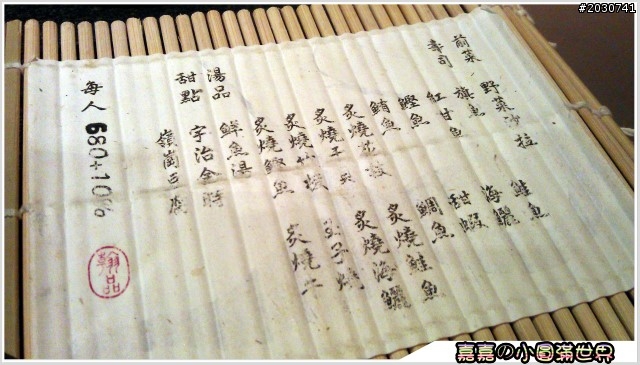 前菜 野菜沙拉
壽司 旗魚 鮭魚
紅甘魚 海鱺
鰹魚 甜蝦
鮪魚 鯛魚
炙燒花枝 炙燒鮭魚
炙燒干貝 炙燒海鱺
炙燒竹筴 玉子燒
炙燒鰹魚 炙燒牛
湯品 鮮魚湯
甜點 宇治金時
嶺岡豆腐
每人 680+10%
#2030741
嘉嘉の小圓滿世界